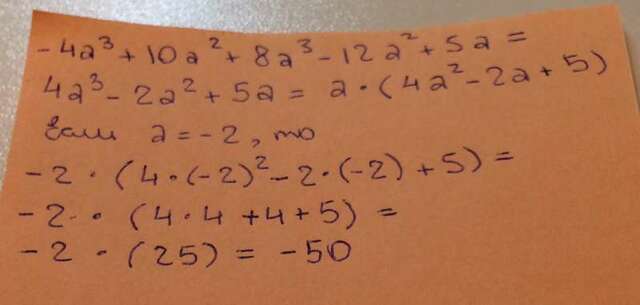 -4a³ + 10a² + 8a³ - 12a² + 5a =
4a³ - 2a² + 5a = a · (4a² - 2a + 5)
Если a = -2, то
-2 · (4 · (-2)² - 2 · (-2) + 5) =
-2 · (4 · 4 + 4 + 5) =
-2 · (25) = -50